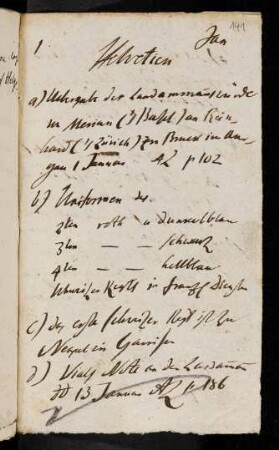 Jan 141
1
Helvetien
a) Uebergabe der Landammanswürde
von Merian (Basel) an Rein-
hard (Zürich) zu in Aar-
gau 1 Januar AZ p 102
b) Uniformen des
2ten roth u dunkelblau
3ten — — schwarz
4ten — — hellblau
Schweizer Regts in franz Diensten
c) das erste Schweizer Regt ist zu
Neapel in Garnison
d) Vials Note an den Landamman
dd 13 Januar AZ p 186